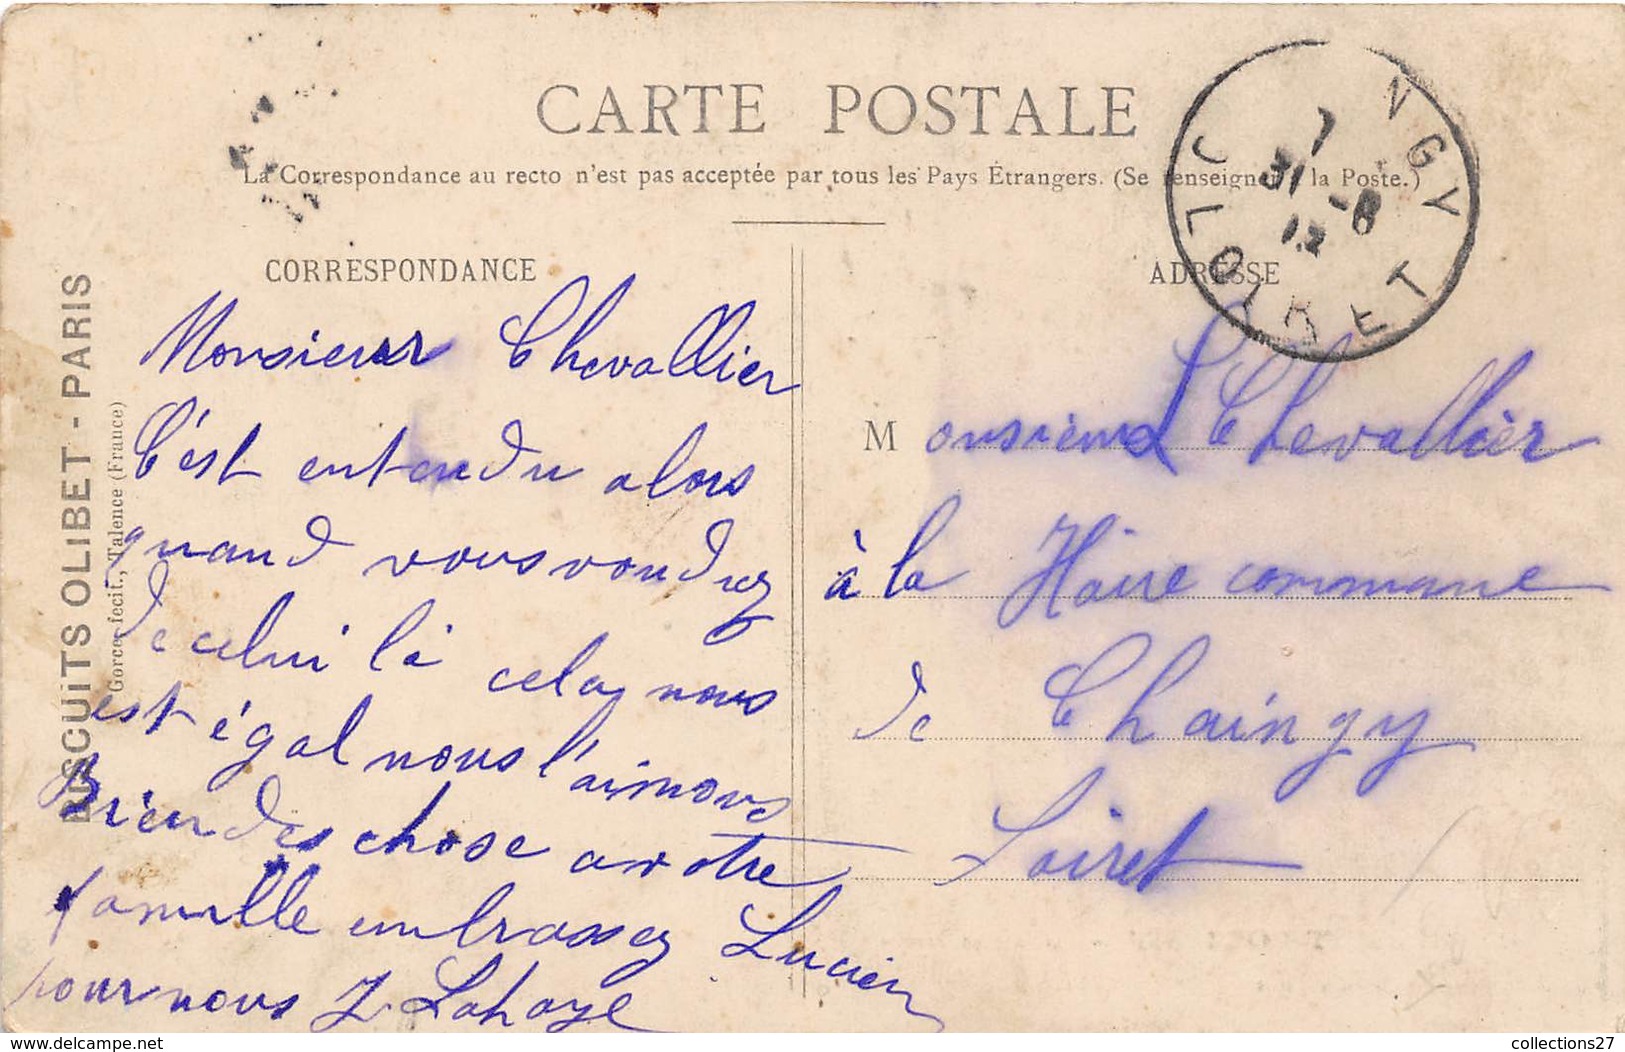 CARTE POSTALE
La Correspondance au recto n'est pas acceptée par tous les Pays Étrangers. (Se renseigner à la Poste.)
CORRESPONDANCE
Monsieur Chevallier
C'est entendu alors
quand vous voudrez
de celui là cela nous
est égal nous l'aimons
Bien des chose a votre
famille embrassez Lucien
pour nous J Lahaye
ADRESSE
Monsieur Chevallier
à la Haire commune
de Chaingy
Loiret
NGY
7
31-8
12
LOIRET
BISCUITS OLIBET - PARIS
Gorce, fecit., Talence (France)
collections27